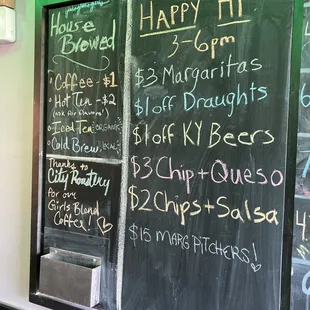 House
Brewed
Coffee - $1
Hot Tea - $2
Iced Tea
Cold Brew
Thanks to
City Roastery
for our
Girls Blend
Coffee!
HAPPY H
3-6pm
$3 Margaritas
$1 off Draughts
$1 off KY Beers
$3 Chip + Queso
$2 Chips + Salsa
$15 MARG PITCHERS!